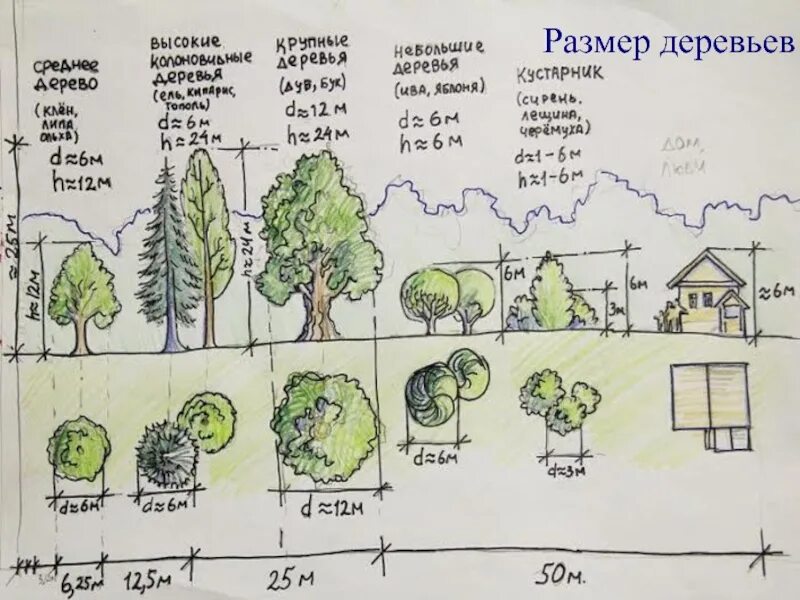 Размер деревьев
среднее
дерево
(клён,
липа,
ольха)
d≈6м
h≈12м
высокие
колоновидные
деревья
(ель, кипарис,
тополь)
d≈6м
h≈24м
крупные
деревья
(дуб, бук)
d≈12м
h≈24м
небольшие
деревья
(ива, яблоня)
d≈6м
h≈6м
кустарник
(сирень,
лещина,
черёмуха)
d≈1-6м
h≈1-6м
дом,
люди
≈25м
h≈12м
h≈24м
6м
3м
6м
≈6м
d≈6м
d≈6м
d≈12м
d≈6м
d≈3м
6,25м
12,5м
25м
50м.